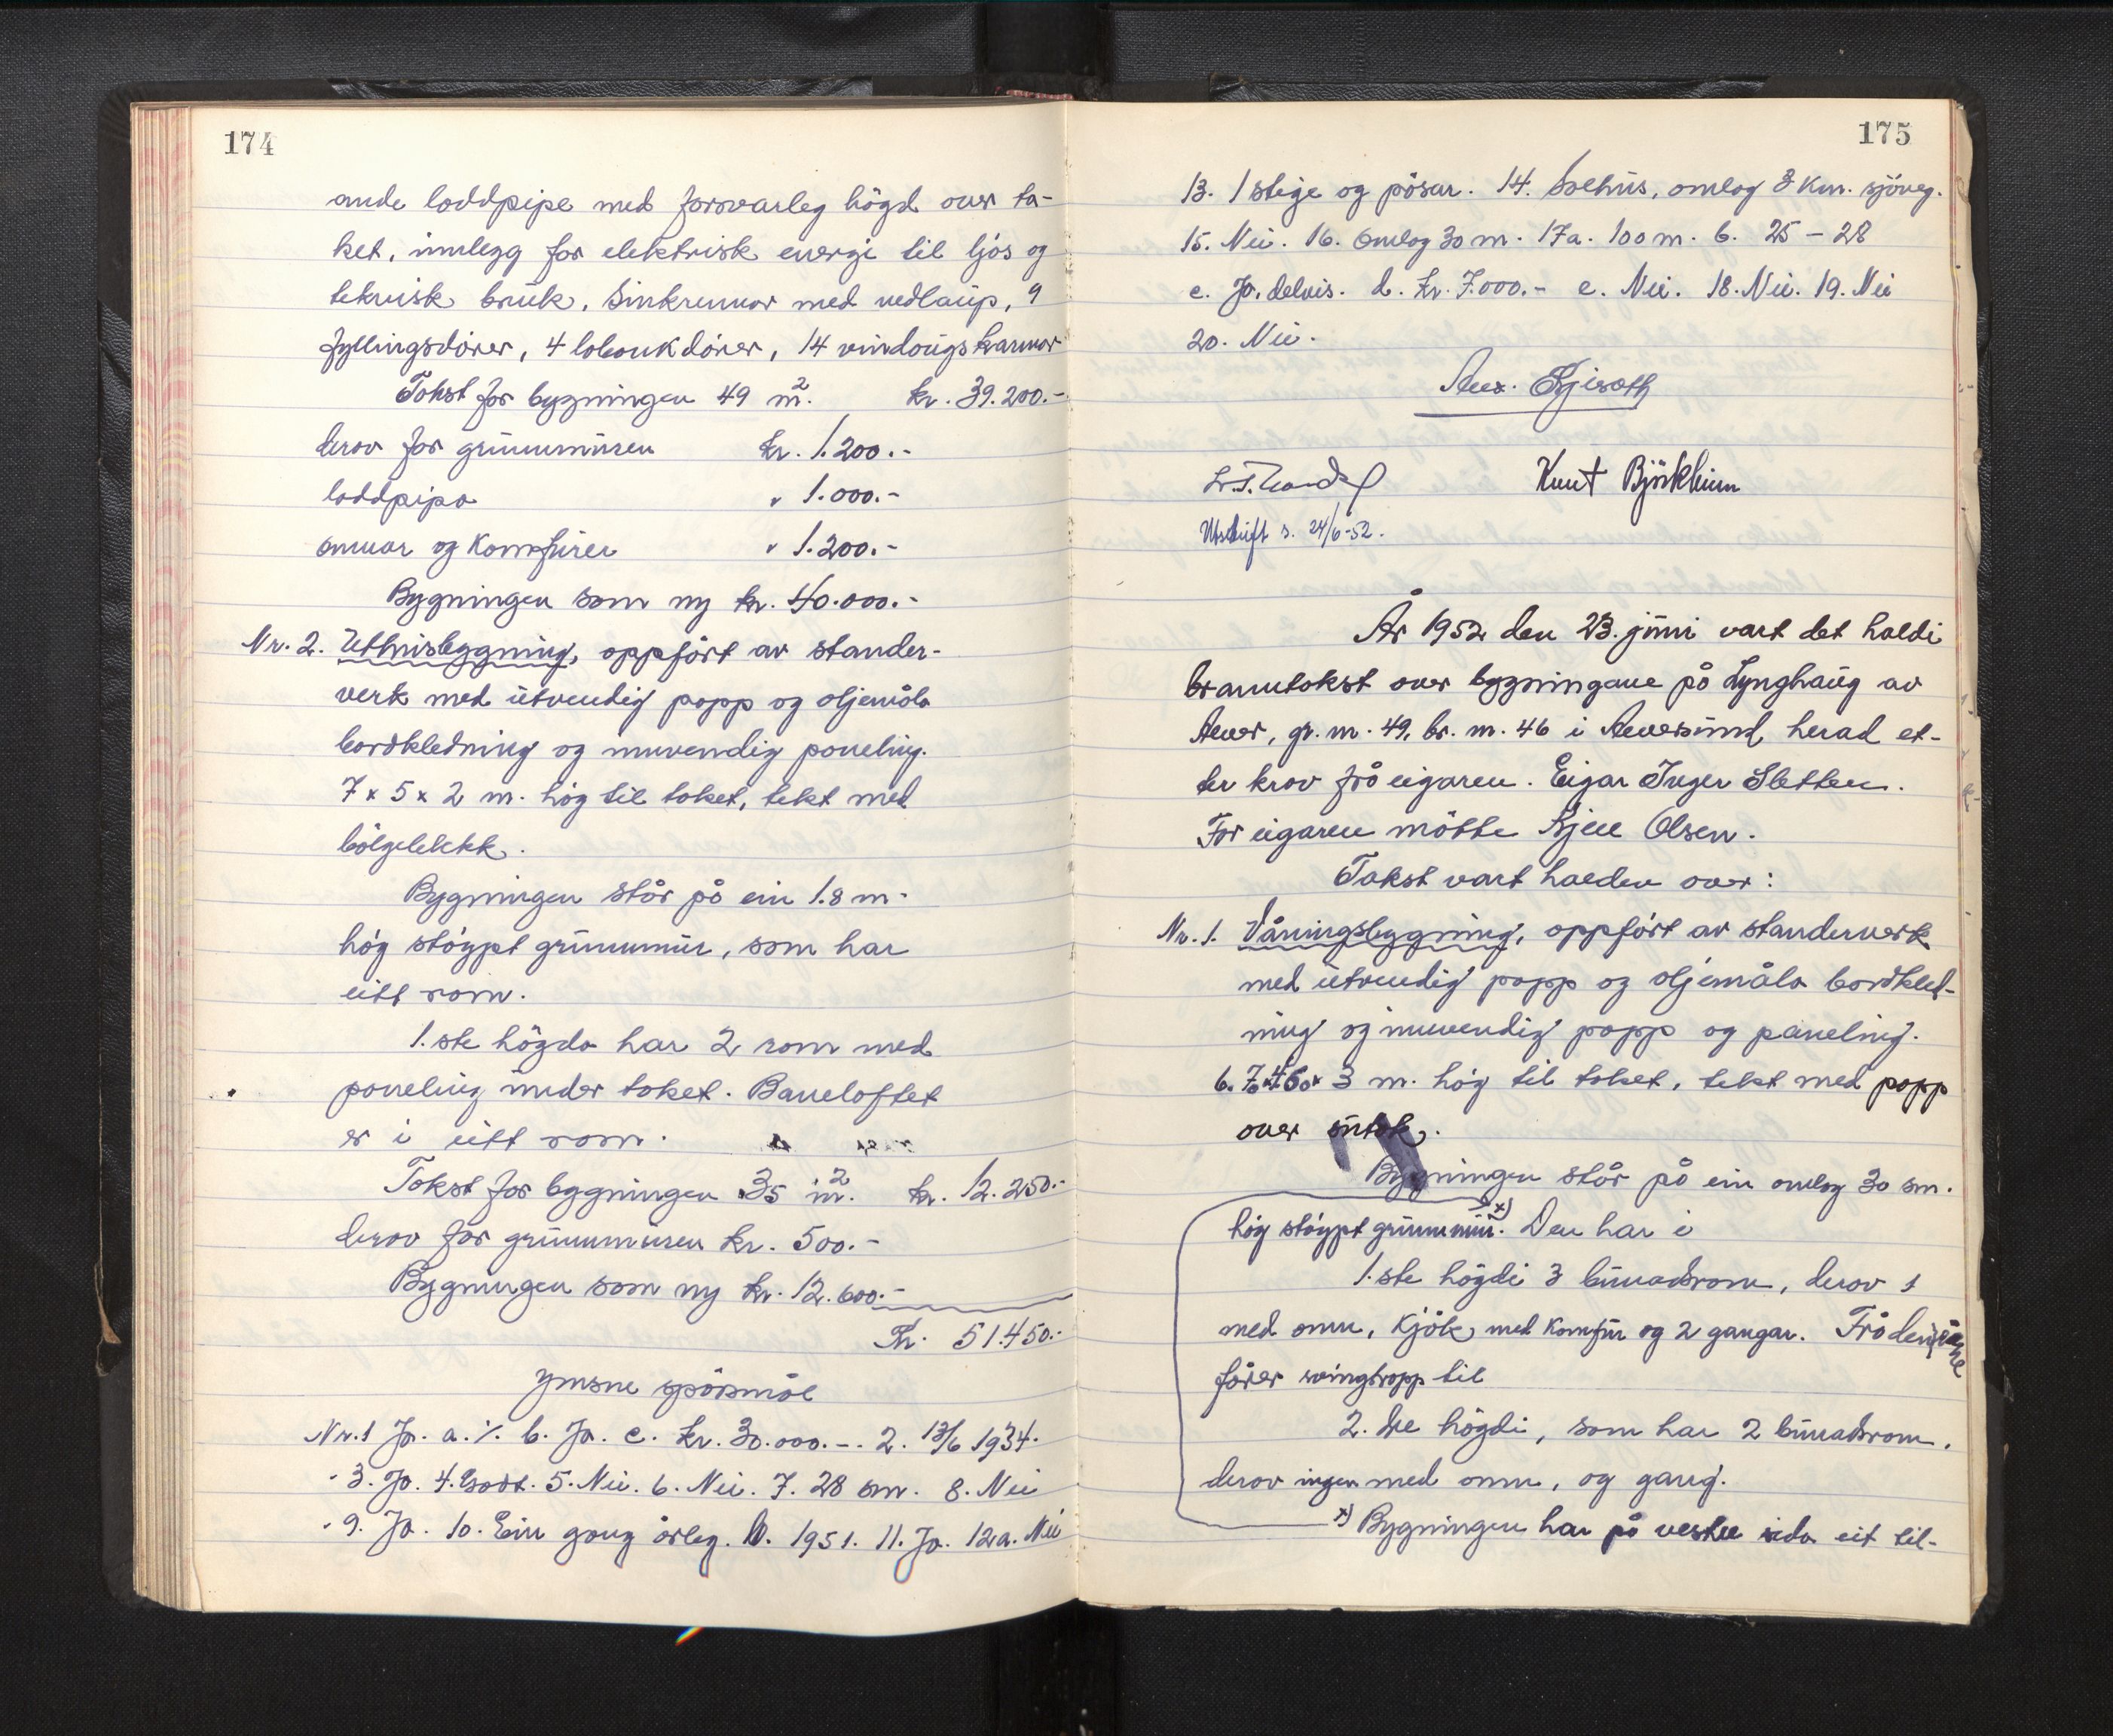 174
ande loddpipe med forsvarleg högd over ta-
ket, innlegg for elektrisk energi til ljos og
teknisk bruk. Sinkrennor med nedlaup, 9
fyllingsdörer, 4 labankdörer, 14 vindaugskarmar
Takst for bygningen 49 m². kr. 39.200.-
derav for grunnmuren kr. 1.200.-
loddpipa " 1.000.-
omnar og komfurer " 1.200.-
Bygningen som ny kr. 40.000.-
Nr. 2. Uthusbygning, oppfört av stander-
verk med utvendig papp og oljemåla
bordkledning og innvendig paneling.
7 x 5 x 2 m. hög til taket, tekt med
bölgeblekk.
Bygningen står på ein 1.8 m.
hög stöypt grunnmur, som har
eitt rom.
1. ste högda har 2 rom med
paneling under taket. Baneloftet
er i eitt rom.
Takst for bygningen 35 m². kr. 12.250.-
derav for grunnmuren kr. 500.-
Bygningen som ny kr. 12.600.-
Kr. 51.450.-
Ymsne spörsmål
Nr. 1 Ja. a. ./. b. Ja. c. kr. 30.000.-. 2. 13/6 1934.
" 3. Ja. 4. Godt. 5. Nei. 6. Nei. 7. 28 sm. 8. Nei
" 9. Ja. 10. Ein gong årleg. b. 1951. 11. Ja. 12a. Nei
175
13. 1 stige og pösar. 14. Salhus, omlag 3 km. sjöveg.
15. Nei. 16. Omlag 30 m. 17a. 100 m. b. 25 - 28
c. Ja. delvis. d. kr. 7.000.- e. Nei. 18. Nei. 19. Nei
20. Nei.
Knut Björkheim
Utskrift s. 24/6-52.
År 1952 den 23. juni vart det haldi
branntakst over bygningane på Lynghaug av
Alver, gr. nr. 49, br. nr. 46 i Alversund, herad et-
ter krav frå eigaren. Eigar Inger Sletten.
For eigaren mötte Kjell Olsen.
Takst vart halden over:
Nr. 1. Våningsbygning, oppfört av standerverk
med utvendig papp og oljemåla bordkled-
ning og innvendig papp og paneling.
3 m. hög til taket, tekt med papp
over sutak.
Bygningen står på ein omlag 30 sm.
hög stöypt grunnmur. x) Den har i
1. ste högdi 3 buradsrom, derav 1
med omn, kjök med komfur og 2 gangar. Frå den eine
förer svingtrapp til
2. dre högdi, som har 2 buradsrom,
derav ingen med omn, og gang.
x) Bygningen har på vestre sida eit til-